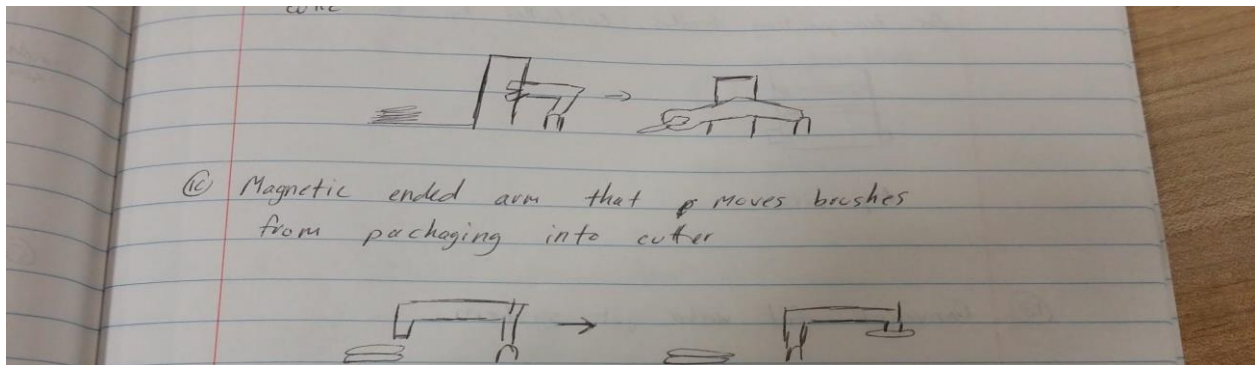 1c Magnetic ended arm that moves brushes
from packaging into cutter